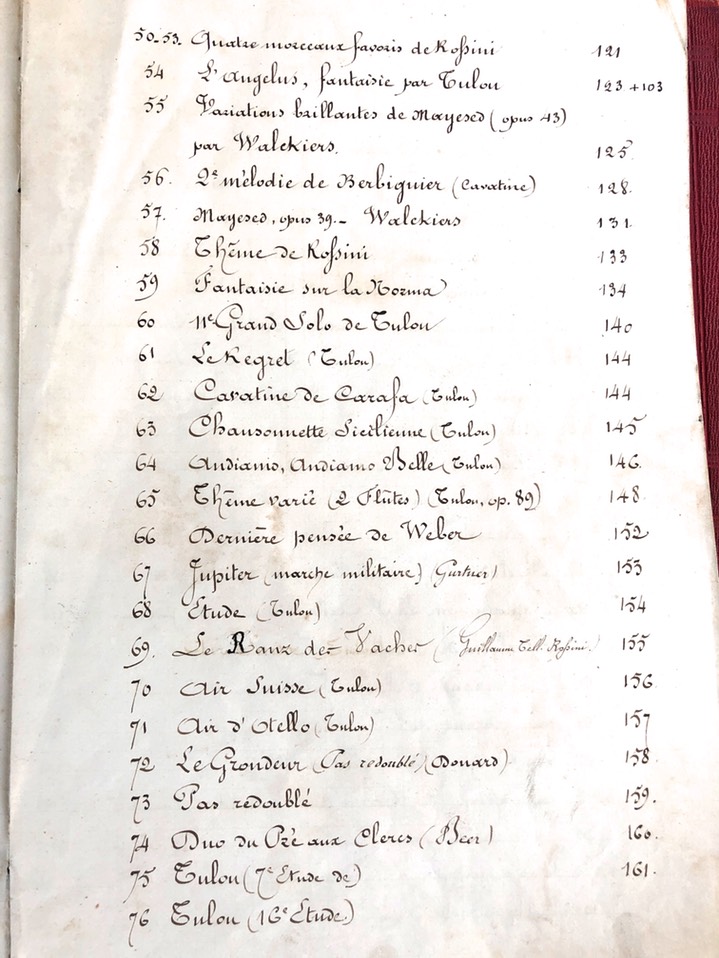 50-53. Quatre morceaux favoris de Rossini 121
54 L'Angelus, fantaisie par Tulou 123 + 103
55 Variations brillantes de Mayesed (opus 43)
par Walckiers. 125
56. 2e mélodie de Berbiguier (Cavatine) 128
57. Mayesed, opus 39. - Walckiers 131
58 Thême de Rossini 133
59 Fantaisie sur la Norma 134
60 11e Grand Solo de Tulou 140
61 Le Regret (Tulou) 144
62 Cavatine de Carafa (Tulou) 144
63 Chansonnette Sicilienne (Tulou) 145
64 Andiamo, Andiamo Belle (Tulou) 146
65 Thême varié (2 Flûtes) (Tulou, op. 89) 148
66 Dernière pensée de Weber 152
67 Jupiter (marche militaire) (Gurtner) 153
68 Etude (Tulou) 154
69. Le Ranz des Vaches (Guillaume Tell. Rossini.) 155
70 Air Suisse (Tulou) 156
71 Air d'Otello (Tulou) 157
72 Le Grondeur (Pas redoublé) (Douard) 158
73 Pas redoublé 159.
74 Duo du Pré aux Clercs (Beer) 160
75 Tulou (7e Etude de) 161
76 Tulou (16e Etude.)